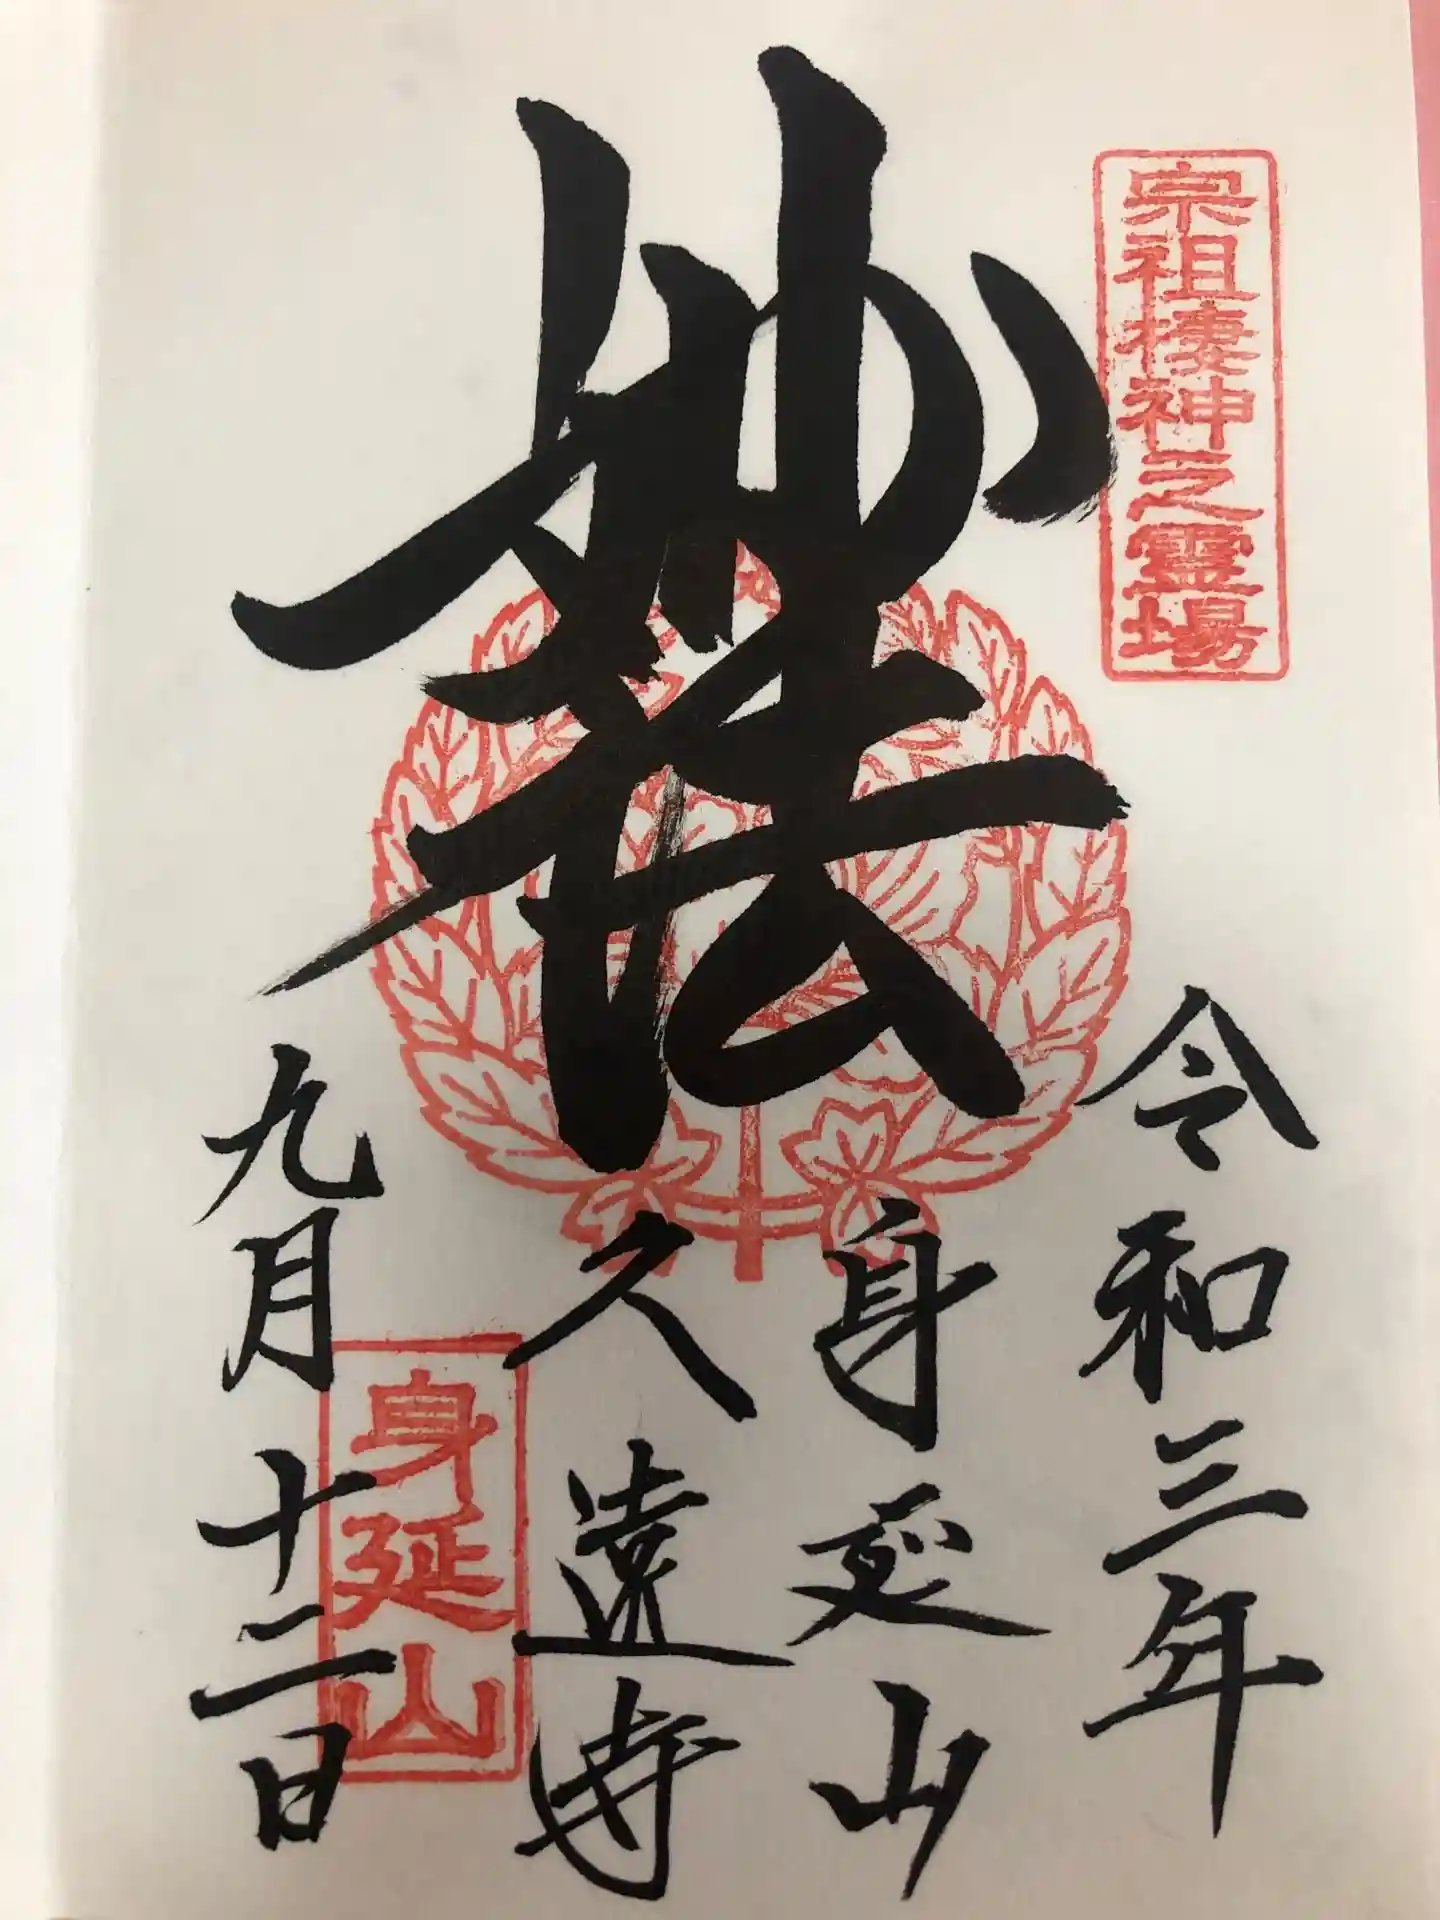 宗祖棲神之霊場
令和三年
妙法
身延山
久遠寺
九月十二日
身延山